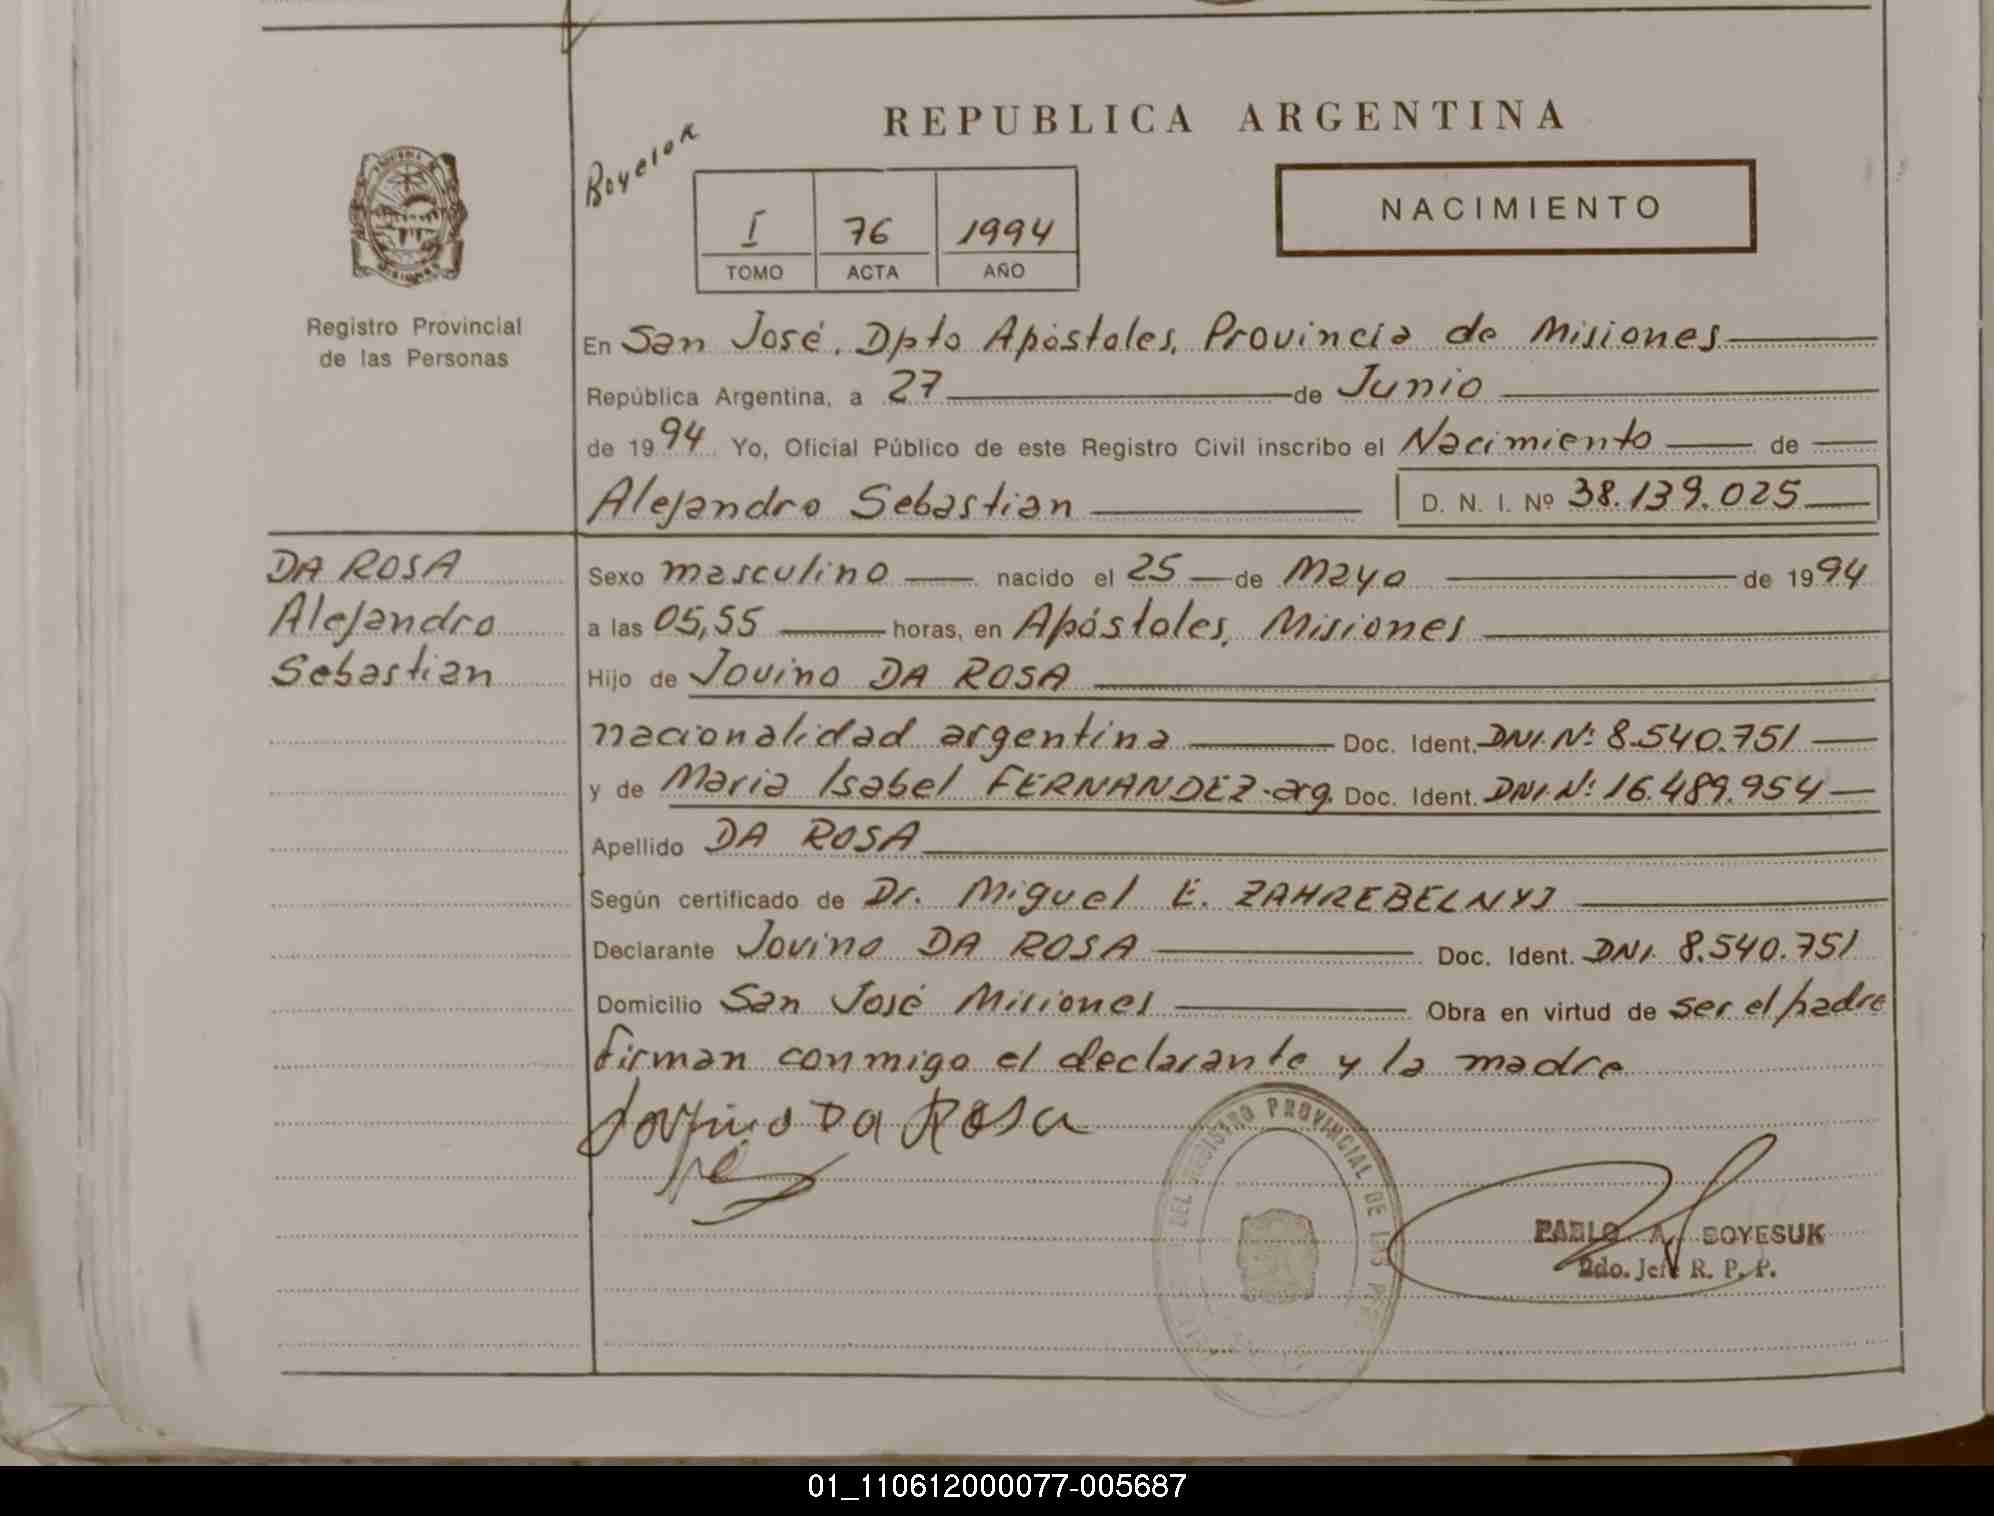 REPUBLICA ARGENTINA
NACIMIENTO
I 76 1994
TOMO ACTA AÑO
Registro Provincial
de las Personas
En San José, Dpto Apóstoles, Provincia de Misiones
República Argentina, a 27 de Junio
de 1994 Yo, Oficial Público de este Registro Civil inscribo el Nacimiento de
Alejandro Sebastian D. N. I. Nº 38.139.025
DA ROSA
Alejandro
Sebastian
Sexo masculino nacido el 25 de Mayo de 1994
a las 05,55 horas, en Apóstoles, Misiones
Hijo de Jovino DA ROSA
nacionalidad argentina Doc. Ident. DNI. Nº: 8.540.751
y de Maria Isabel FERNANDEZ-arg. Doc. Ident. DNI. Nº: 16.489.954
Apellido DA ROSA
Según certificado de Dr. Miguel E. ZAHREBELNYJ
Declarante Jovino DA ROSA Doc. Ident. DNI. 8.540.751
Domicilio San José Misiones Obra en virtud de ser el padre
firman conmigo el declarante y la madre
Jovino Da Rosa
DEL REGISTRO PROVINCIAL DE LAS
PABLO A. BOYESUK
Jefe R. P. P.
01_110612000077-005687